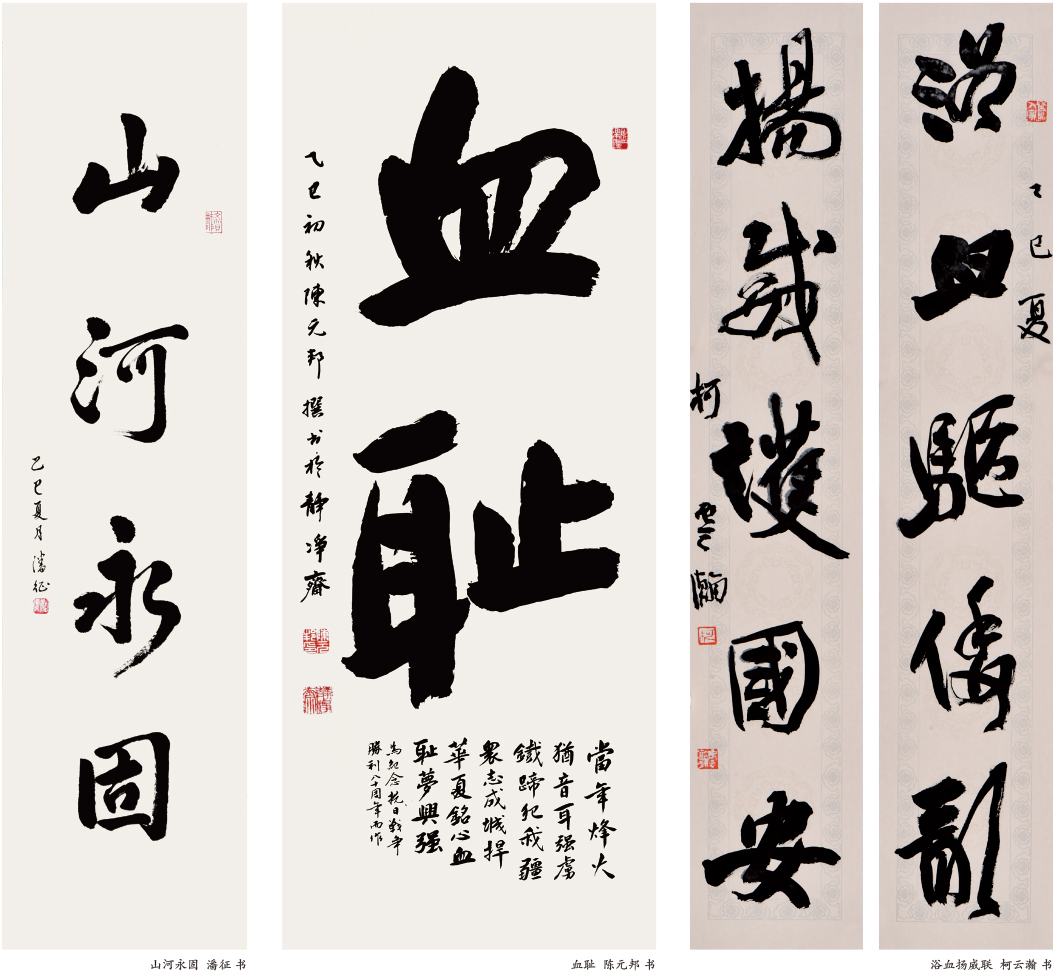 山河永固
乙巳夏月潘征
血耻
乙巳初秋陳元邦撰书於静净齋
當年烽火
猶音耳强虜
鐵蹄犯我疆
衆志成城捍
華夏銘心血
耻夢興强
為纪念抗日戰争
勝利八十周年而作
浴血驅倭彰
乙巳夏
揚威護國安
柯雲瀚
山河永固 潘征 书
血耻 陈元邦 书
浴血扬威联 柯云瀚 书